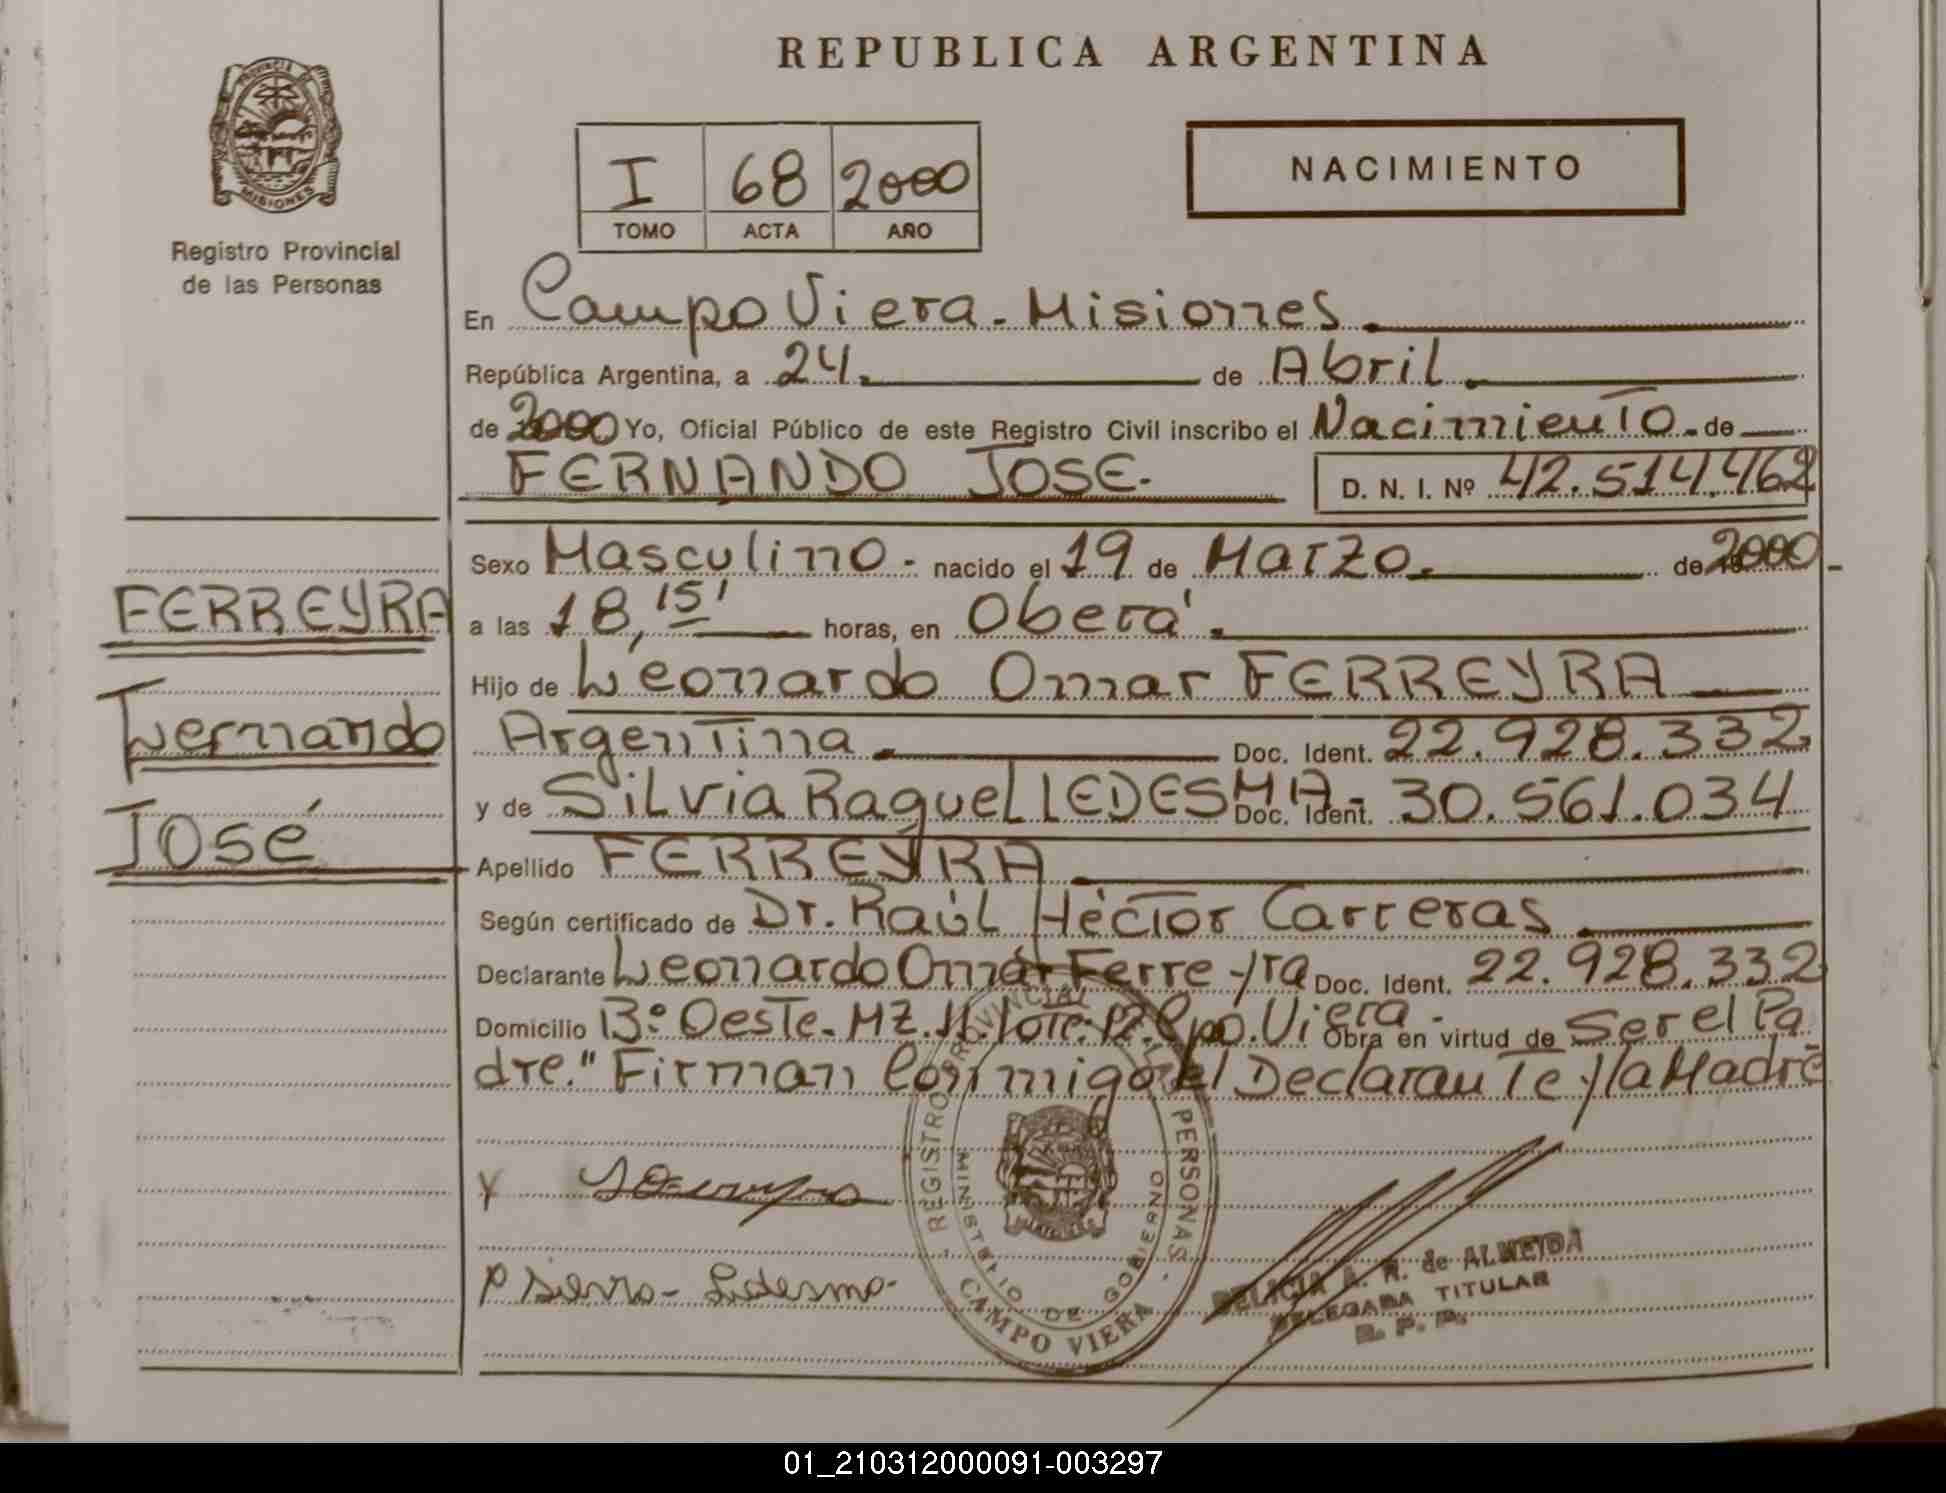 REPUBLICA ARGENTINA
PROVINCIA
MISIONES
Registro Provincial
de las Personas
I 68 2000
TOMO ACTA AÑO
NACIMIENTO
En Campo Viera - Misiones
República Argentina, a 24. de Abril
de 2000 Yo, Oficial Público de este Registro Civil inscribo el Nacimiento de
FERNANDO JOSE. D. N. I. Nº 42.514.462
Sexo Masculino - nacido el 19 de Marzo de 2000 -
a las 18,15' horas, en Oberá
Hijo de Leonardo Omar FERREYRA
Argentina Doc. Ident. 22.928.332
y de Silvia Raquel LEDESMA - Doc. Ident. 30.561.034
Apellido FERREYRA
Según certificado de Dr. Raúl Héctor Carreras
Declarante Leonardo Omar Ferreyra Doc. Ident. 22.928.332
Domicilio Bº Oeste - MZ. Lote: 12. Cpo. Viera - Obra en virtud de Ser el Pa
dre." Firman Conmigo el Declarante y la Madre
FERREYRA
Fernando
José
REGISTRO PROVINCIAL DE LAS PERSONAS
MINISTERIO DE GOBIERNO
CAMPO VIERA
Ledesma
DELICIA A. R. de ALMEIDA
DELEGADA TITULAR
R. P. P.
01_210312000091-003297